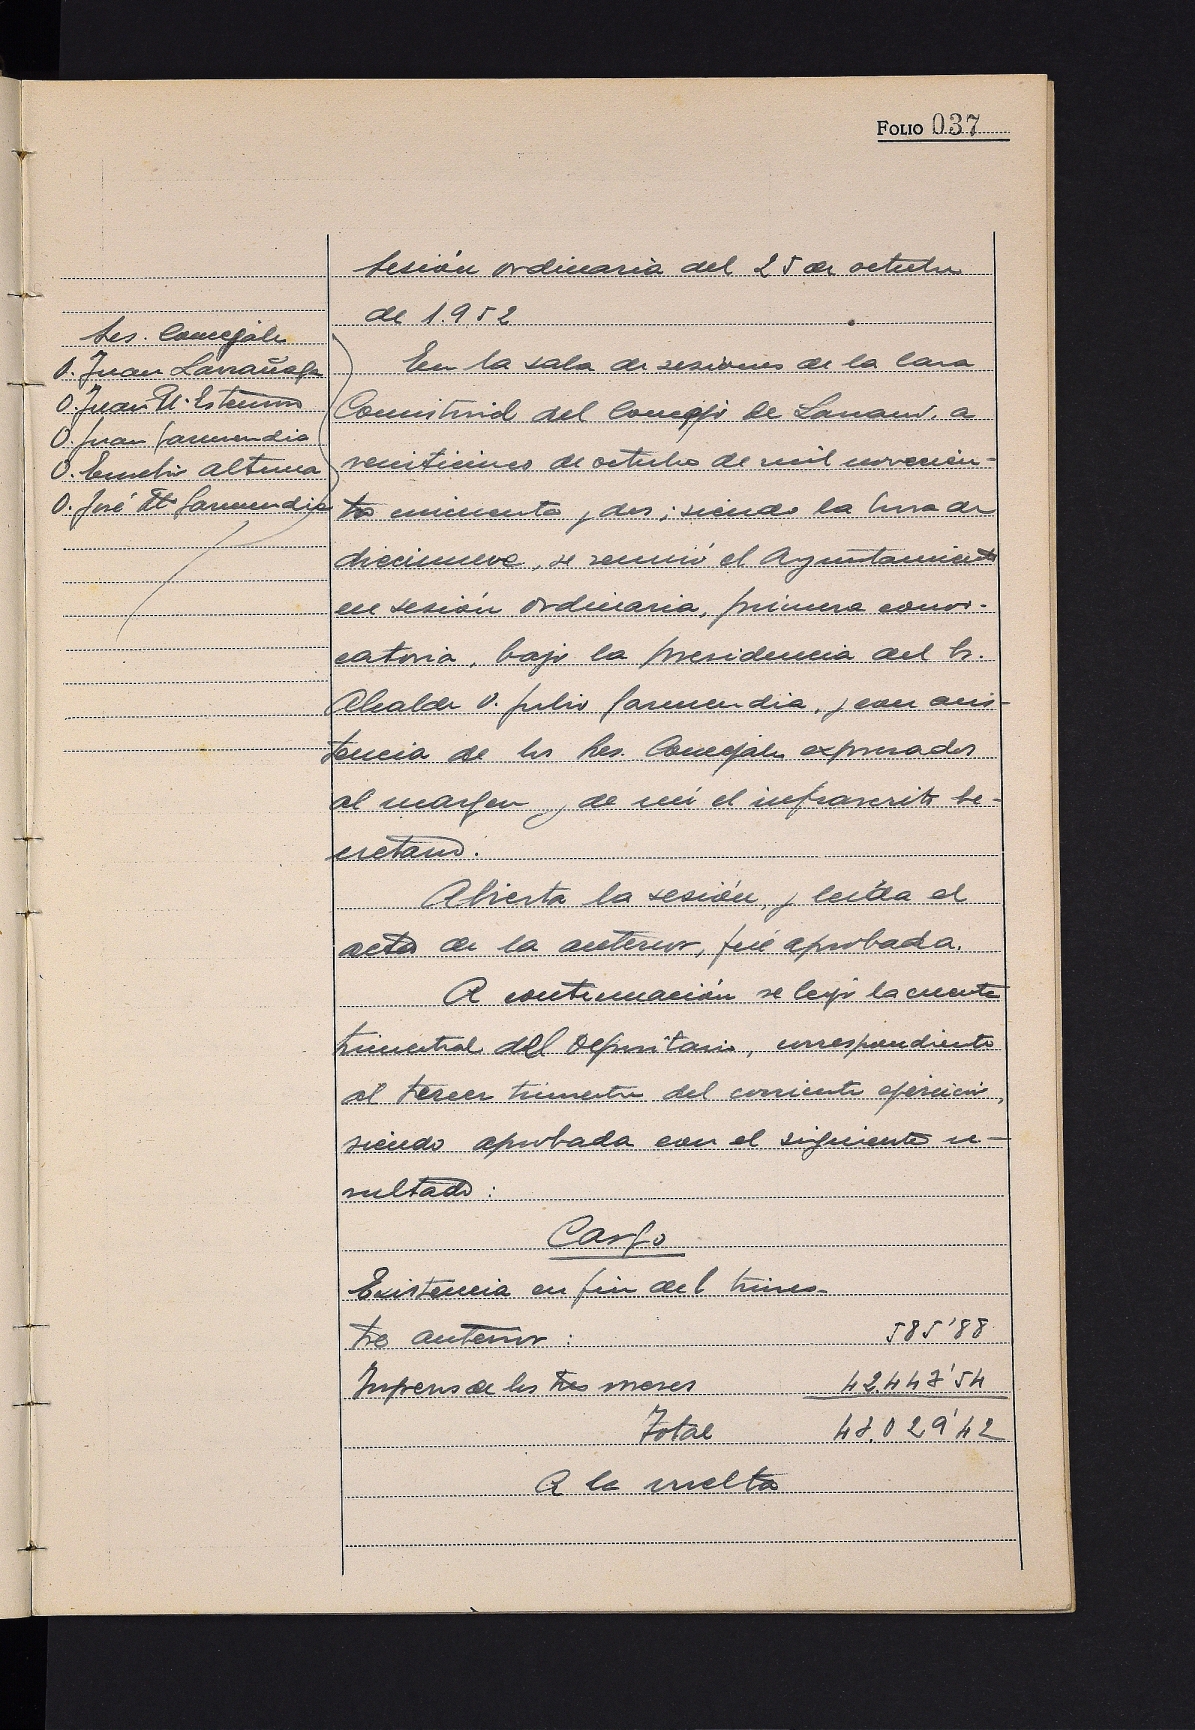 FOLIO 037
Sesión ordinaria del 25 de octubre
de 1.952
Sres. Concejales
D. Juan Larrañaga
D. Juan
D. Juan Garmendia
D. Altuna
D. José Mª Garmendia
En la sala de sesiones de la Casa
Consistorial del Concejo de a
veinticinco de octubre de mil novecien-
tos cincuenta y dos; siendo la hora de
diecinueve, se reunió el Ayuntamiento
en sesión ordinaria, primera convo-
catoria, bajo la presidencia del Sr.
Alcalde D. Julio Garmendia, y con asis-
tencia de los Sres. Concejales expresados
al margen y de mí el infrascrito Se-
cretario.
Abierta la sesión, y leída el
acta de la anterior, fué aprobada.
A continuación se leyó la cuenta
trimestral del Depositario, correspondiente
al tercer trimestre del corriente ejercicio,
siendo aprobada con el siguiente re-
sultado:
Cargo
Existencia en fin del trimes-
tre anterior: 585'88
Ingresos de los tres meses 42.443'54
Total 43.029'42
A la vuelta